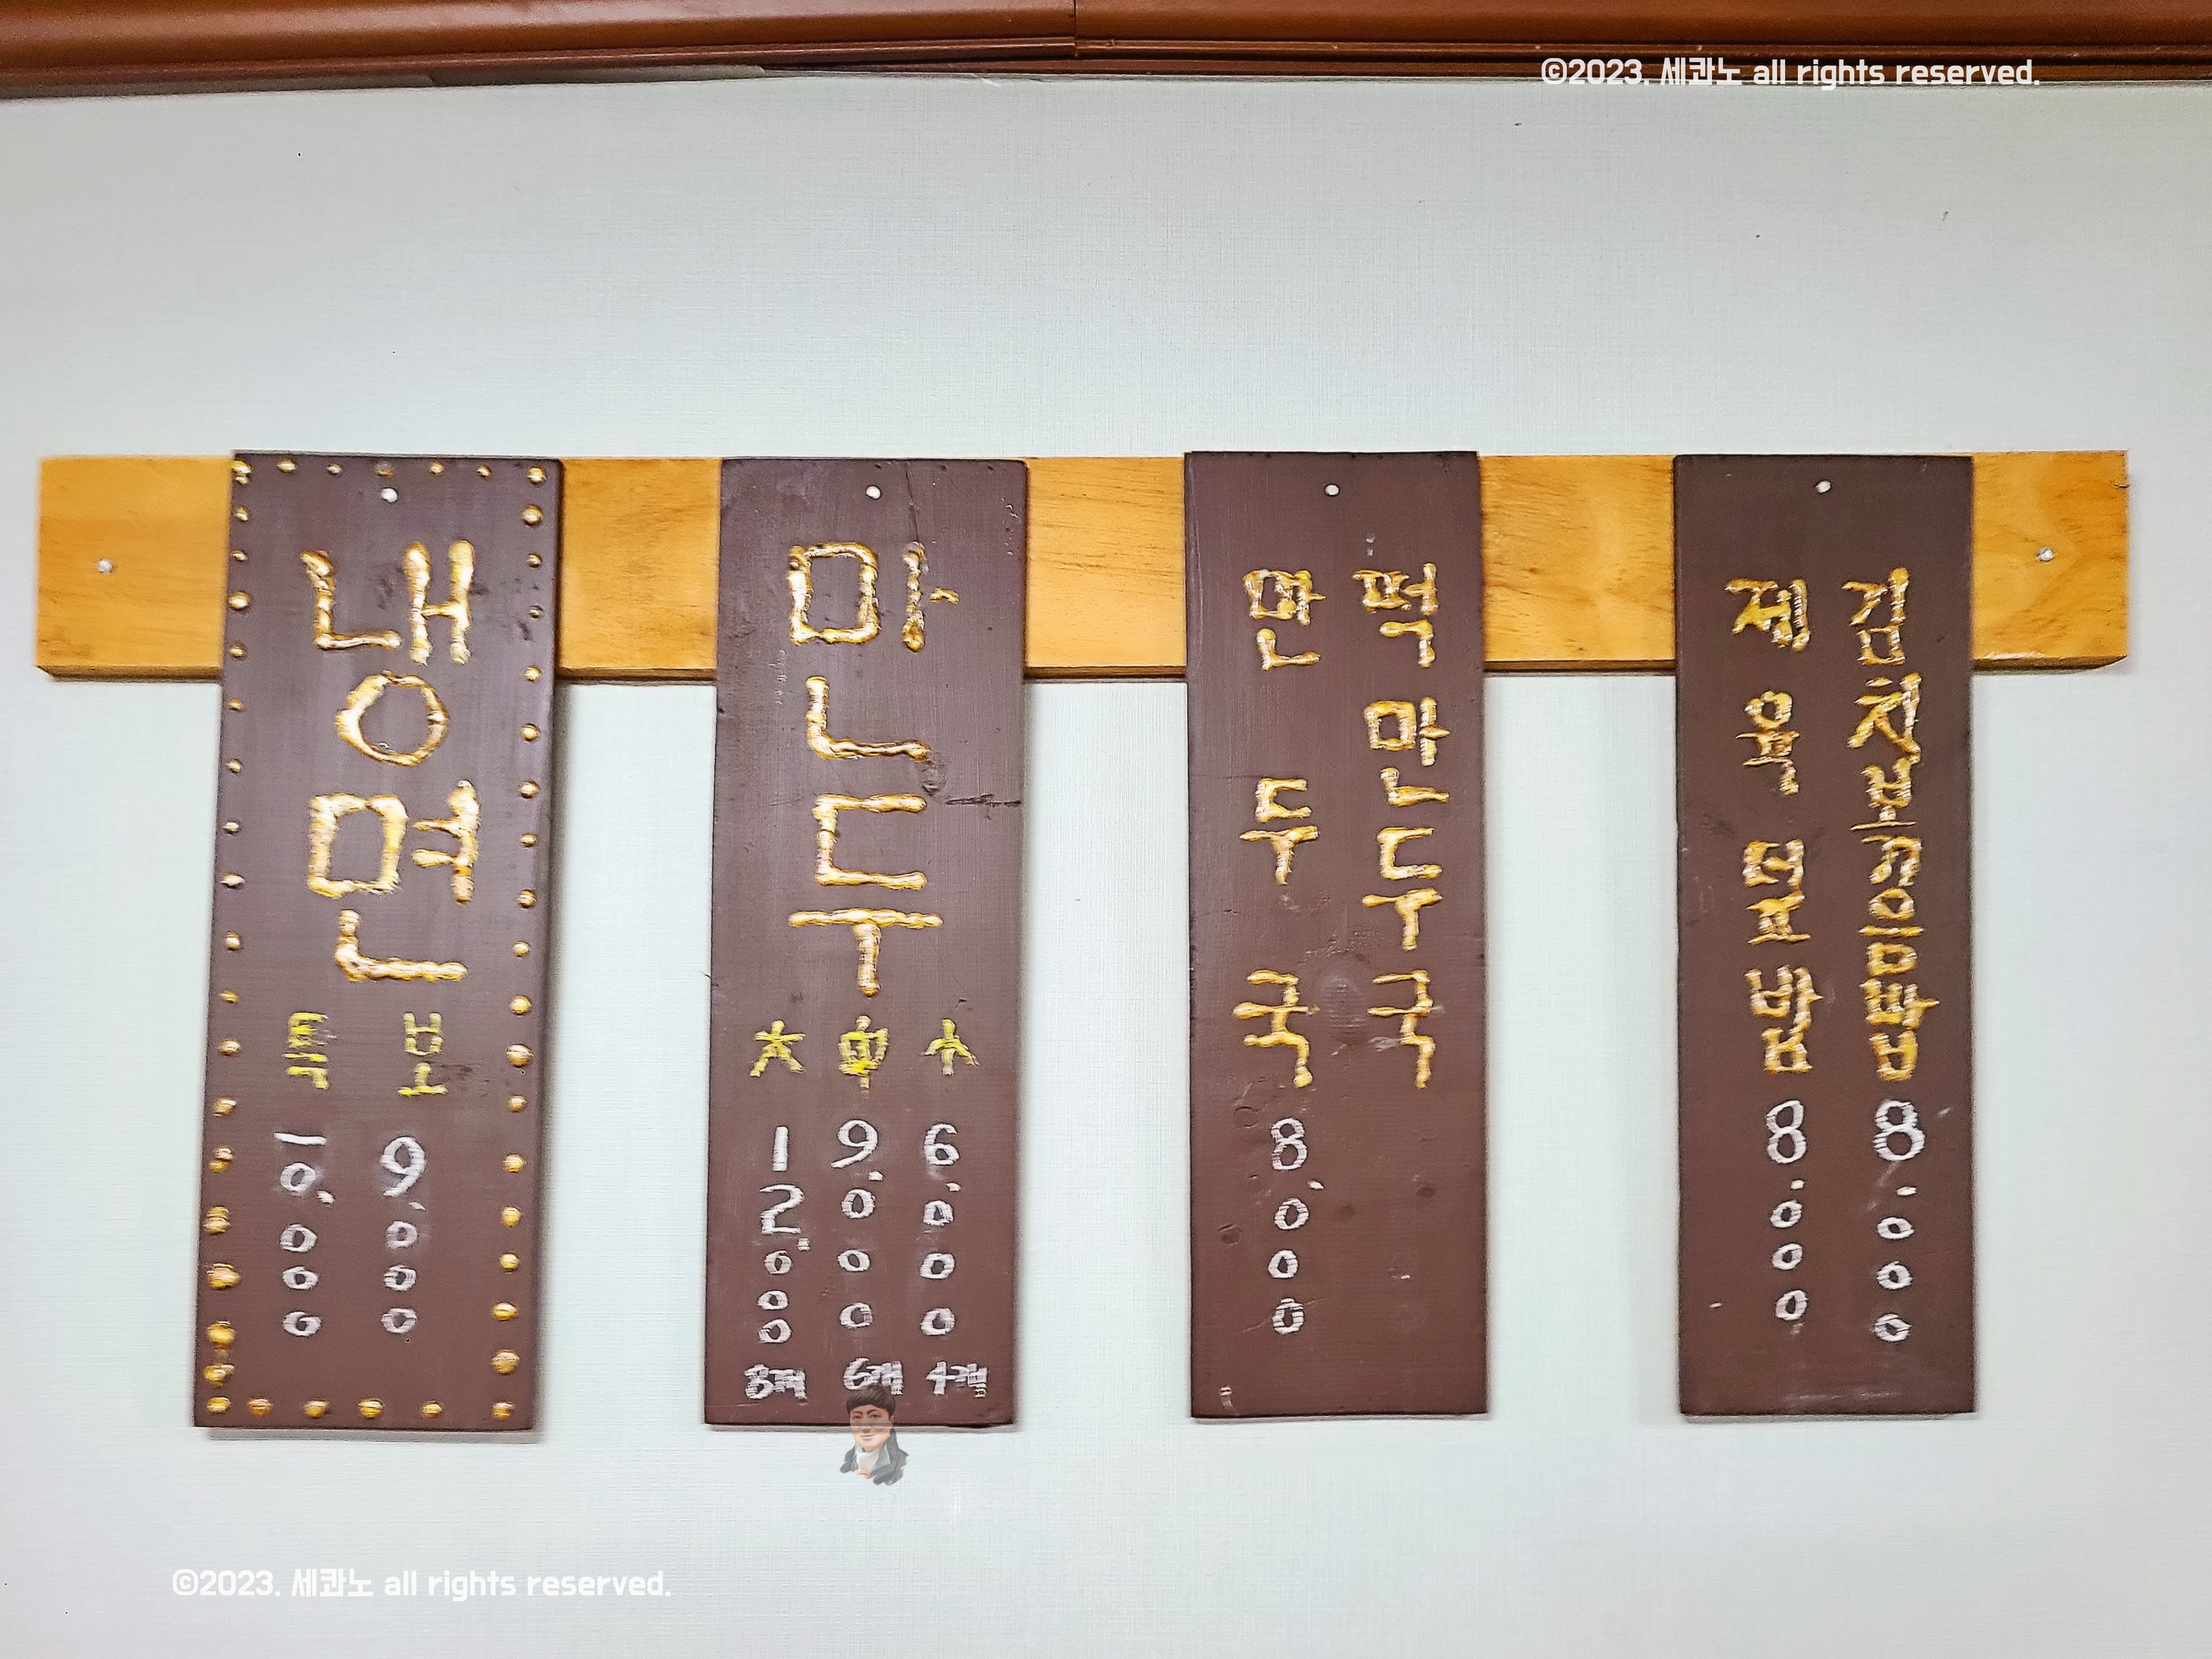 ©2023. 세콴노 all rights reserved.
냉면
특 보
10.000 9.000
만두
大 中 小
12.000 9.000 6.000
8개 6개 4개
만두국
떡만두국
8.000
제육덮밥
8.000
김치볶음밥
8.000
©2023. 세콴노 all rights reserved.